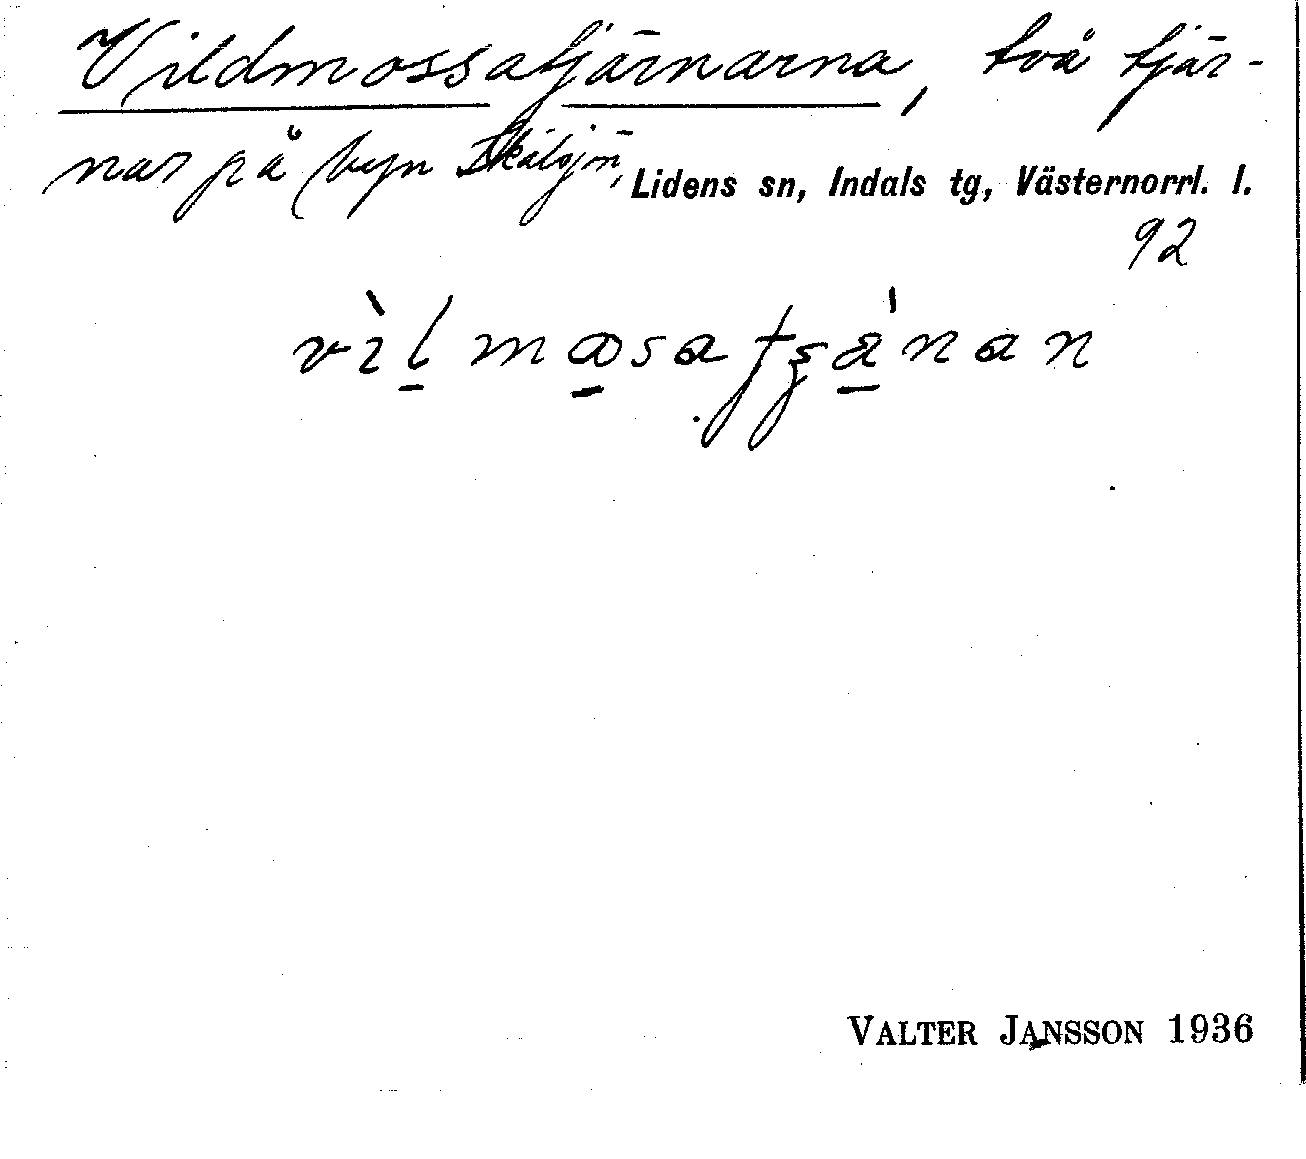 Vildmossatjärnarna, två tjär-
nar på byn Skälsjön, Lidens sn, Indals tg, Västernorrl. l.
92
VALTER JANSSON 1936